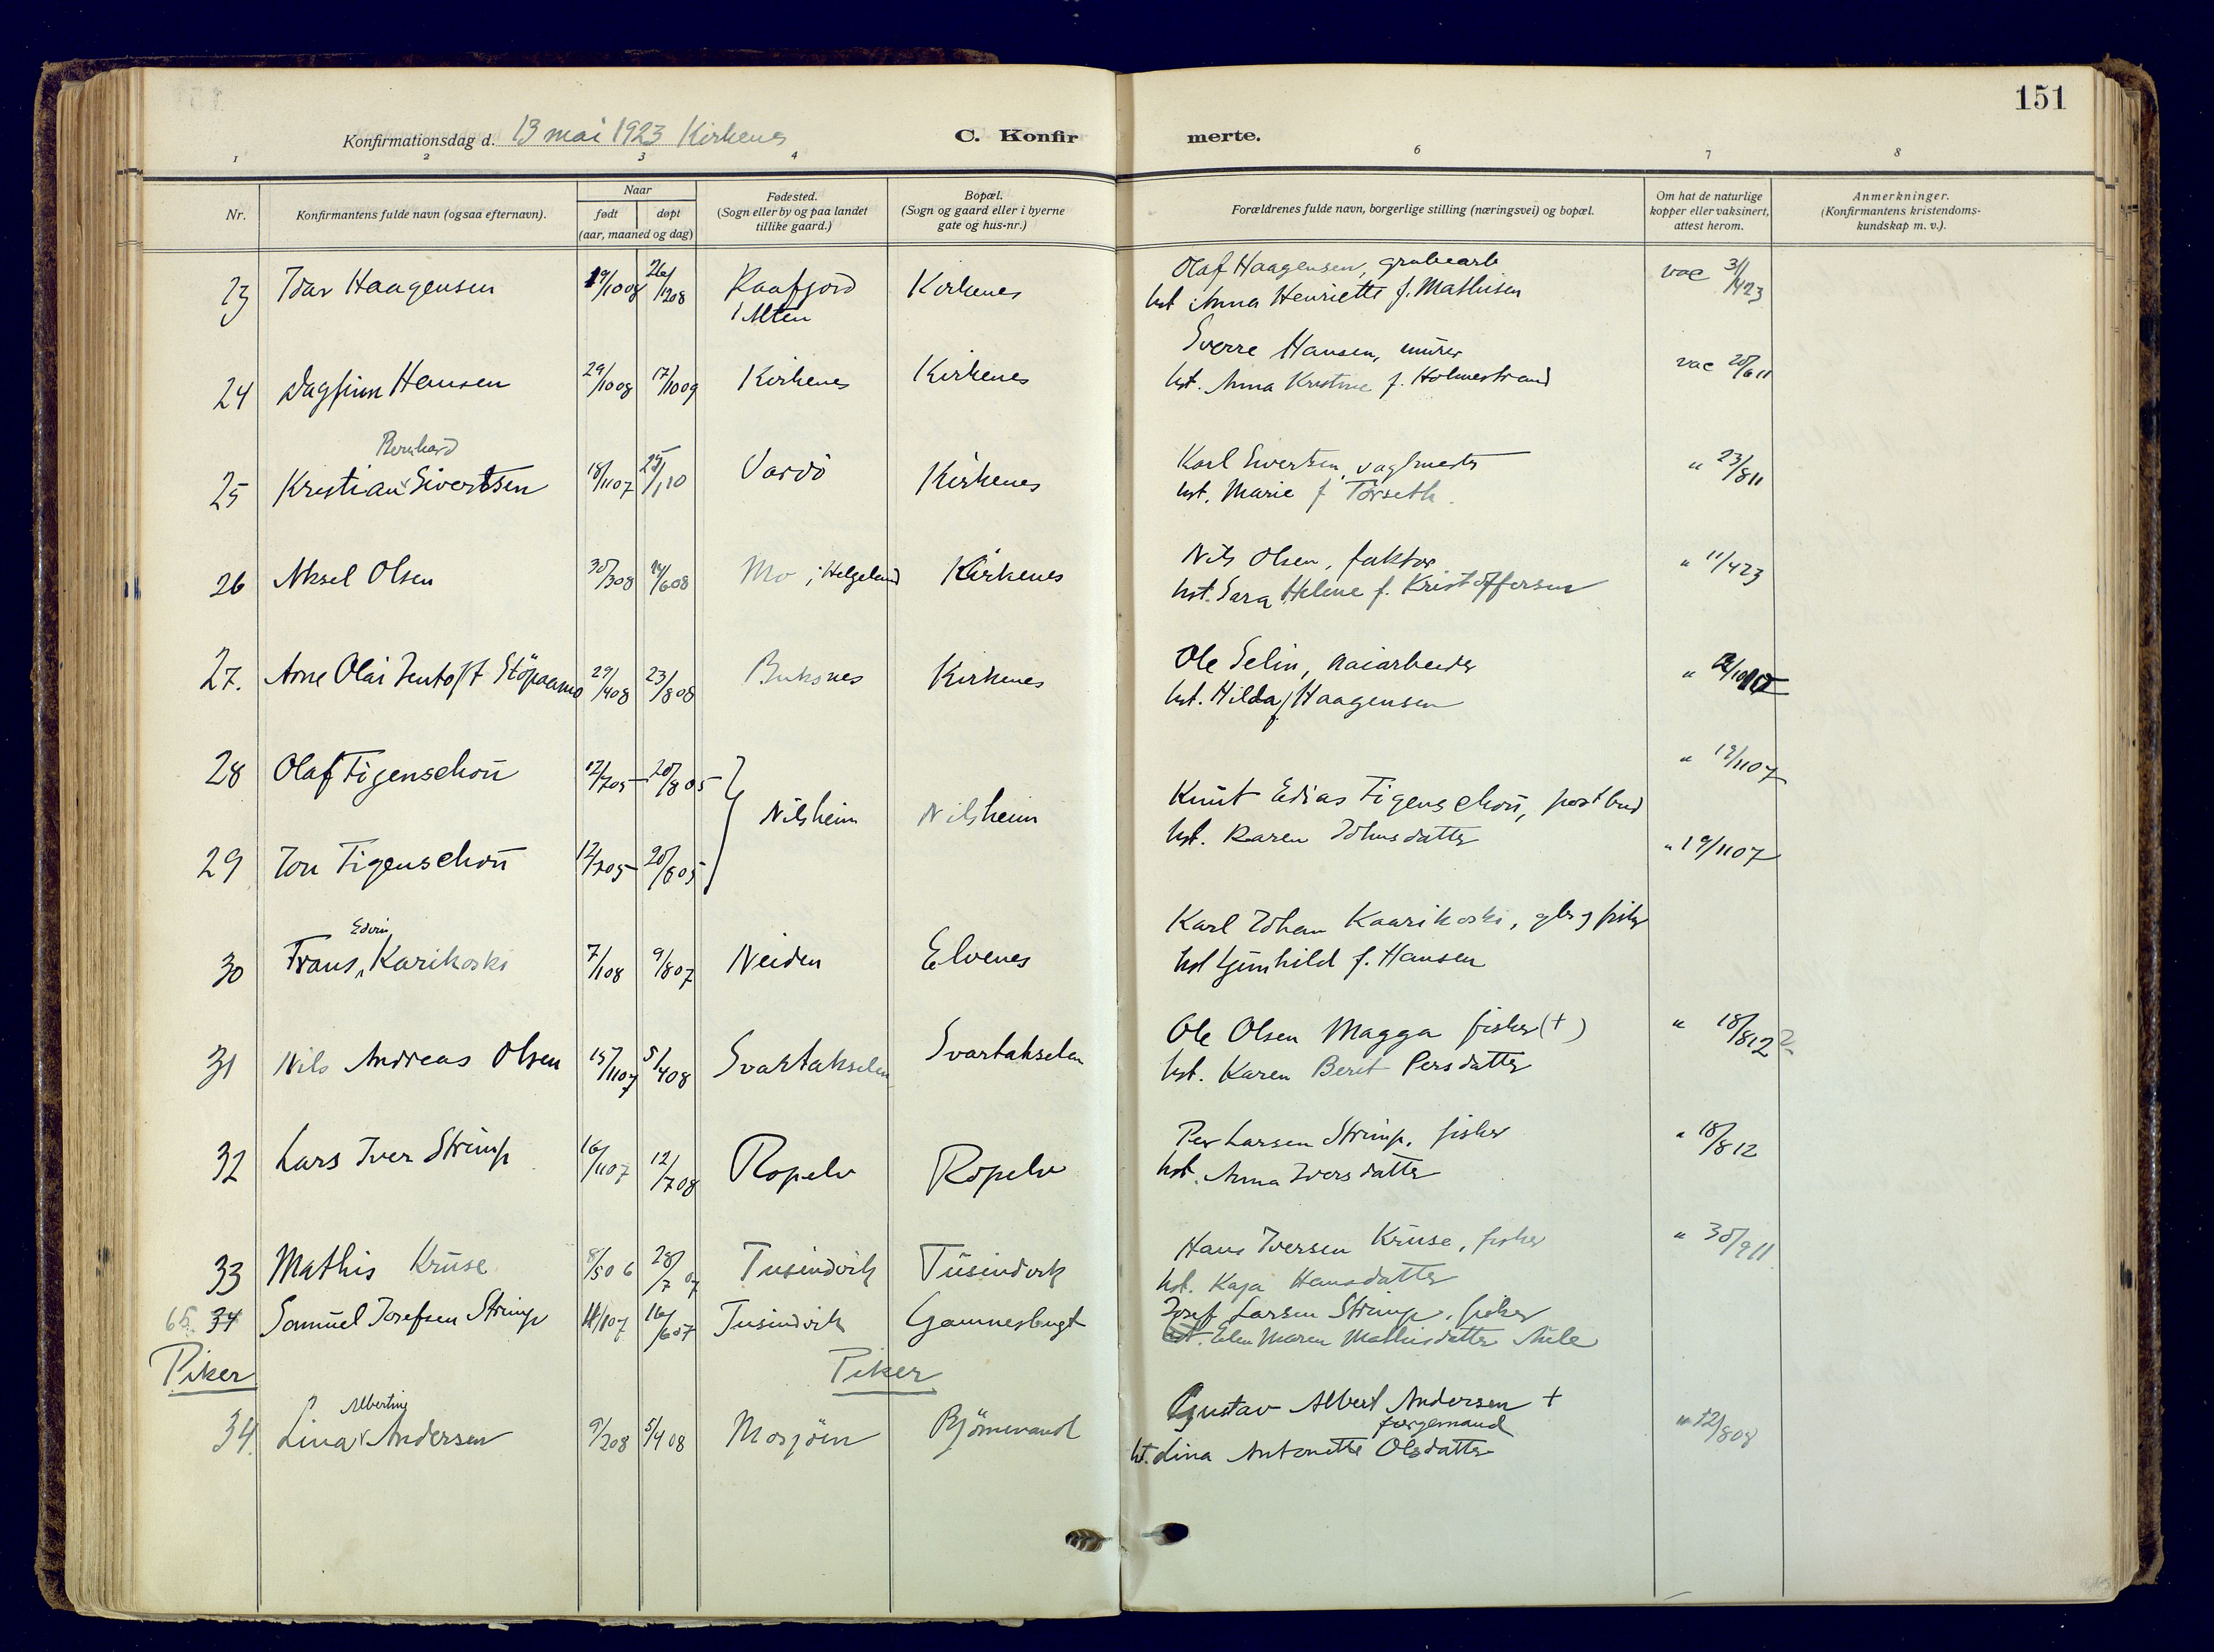 151
Konfirmationsdag d. 13 mai 1923 Kirkenes
C. Konfirmerte.
1 2 3 4 6 7 8
Nr.
Konfirmantens fulde navn (ogsaa efternavn).
Naar
født
døpt
(aar, maaned og dag)
Fødested.
(Sogn eller by og paa landet
tillike gaard.)
Bopæl.
(Sogn og gaard eller i byerne
gate og hus-nr.)
Forældrenes fulde navn, borgerlige stilling (næringsvei) og bopæl.
Om hat de naturlige
kopper eller vaksinert,
attest herom.
Anmerkninger.
(Konfirmantens kristendoms-
kundskap m. v.).
23 Idar Haagensen 19/10 08 26/12 08 Kaafjord Kirkenes Olaf Haagensen, grubearb vac
i Alten hst Anna Henriette f. Mathisen
Sverre Hansen, murer
24 Dagfinn Hansen 29/10 08 17/10 09 Kirkenes Kirkenes hst. Anna Kristine f. Holmestrand vac 20/6 11
Bernhard
25 Kristian Sivertsen 18/11 07 Vardö Kirkenes Karl Sivertsen, vagtmester " 23/8 11
hst. Marie f Torseth.
26 Aksel Olsen 30/3 08 14/6 08 Mo i Helgeland Kirkenes Nils Olsen, faktor " 11/4 23
hst. Sara Helene f. Kristoffersen
27. Arne Olai Jentoft Stöpaamo 29/4 08 23/8 08 Buksnes Kirkenes Ole Selin, kaiarbeider "
hst. Hilda f Haagensen
28 Olaf Figenschou 12/7 05 20/8 05 " 19/11 07
Nilsheim Nilsheim Knut Edias Figenschou, postbud
hst. Karen Johnsdatter
29 Jon Figenschou 12/7 05 20/8 05 " 19/11 07
Edvin
30 Frans Karikoski 7/1 08 9/8 07 Neiden Elvenes Karl Johan Kaarikoski, gbr og fisker
hst Gunhild f. Hansen
31 Nils Andreas Olsen 15/11 07 5/4 08 Svartakselen Svartakselen Ole Olsen Magga fisker (+) " 18/8 12
hst. Karen Beret Persdatter
32 Lars Iver Strimp 16/11 07 12/7 08 Ropelv Ropelv Per Larsen Strimp, fisker " 18/8 12
hst. Anna Iversdatter
33 Mathis Kruse 8/5 06 28/7 07 Tusindvik Tusindvik Hans Iversen Kruse, fisker " 30/9 11
hst. Kaja Hansdatter
65. 34 Samuel Josefsen Strimp 11/1 07 16/6 07 Tusindvik Gamnesbugt Josef Larsen Strimp, fisker
hst. Elen Maren Mathisdatter Aule
Piker Piker
Albertine
34. Lina Andersen 9/2 08 5/4 08 Mosjöen Björnevand Gustav Albert Andersen + " 12/8 08
færgemand
hst. Lina Antonette Olsdatter